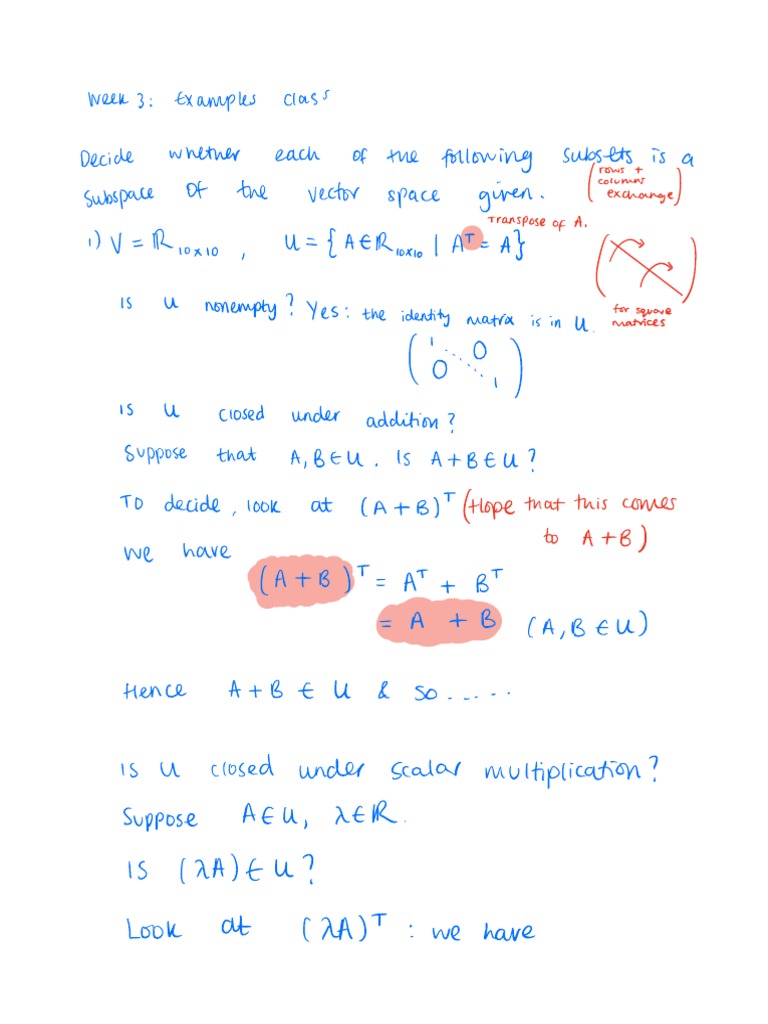 Week 3: Examples class
Decide whether each of the following subsets is a
subspace of the vector space given.
(rows +
columns
exchange)
Transpose of A.
1) V = ℝ₁₀ₓ₁₀ , U = { A ∈ ℝ₁₀ₓ₁₀ | Aᵀ = A}
for square
matrices
Is U nonempty? Yes: the identity matrix is in U.
1 0
0 1
Is U closed under addition?
Suppose that A, B ∈ U. Is A + B ∈ U?
To decide, look at (A + B)ᵀ (Hope that this comes
to A + B)
we have
(A + B)ᵀ = Aᵀ + Bᵀ
= A + B (A, B ∈ U)
Hence A + B ∈ U & so .....
Is U closed under scalar multiplication?
Suppose A ∈ U, λ ∈ ℝ.
Is (λA) ∈ U?
Look at (λA)ᵀ : we have